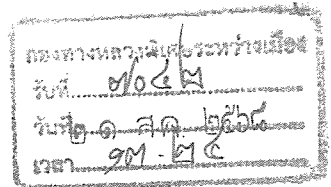 กองทางหลวงพิเศษระหว่างเมือง
รับที่ ๗๐๔๒
วันที่ ๒๑ ส.ค. ๒๕๖๘
เวลา ๑๓.๒๔